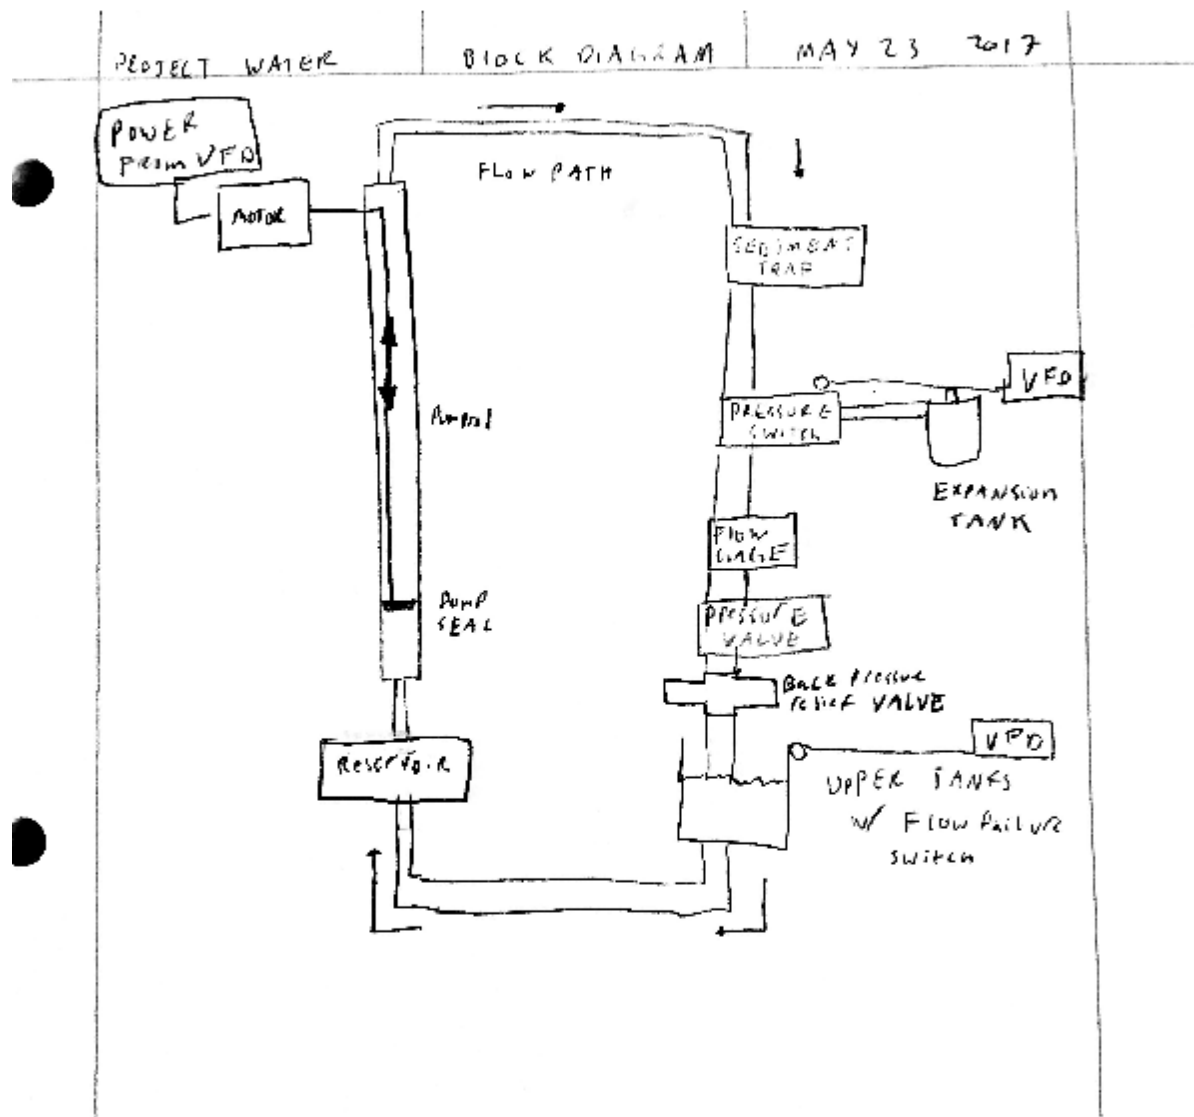 PROJECT WATER
BLOCK DIAGRAM
MAY 23 2017
POWER
FROM VFD
MOTOR
FLOW PATH
SEDIMENT
TRAP
VFD
PRESSURE
SWITCH
EXPANSION
TANK
FLOW
GAGE
PUMP
SEAL
PRESSURE
VALVE
Back Pressure
relief VALVE
RESERVOIR
VFD
UPPER TANKS
w/ FLOW failure
switch